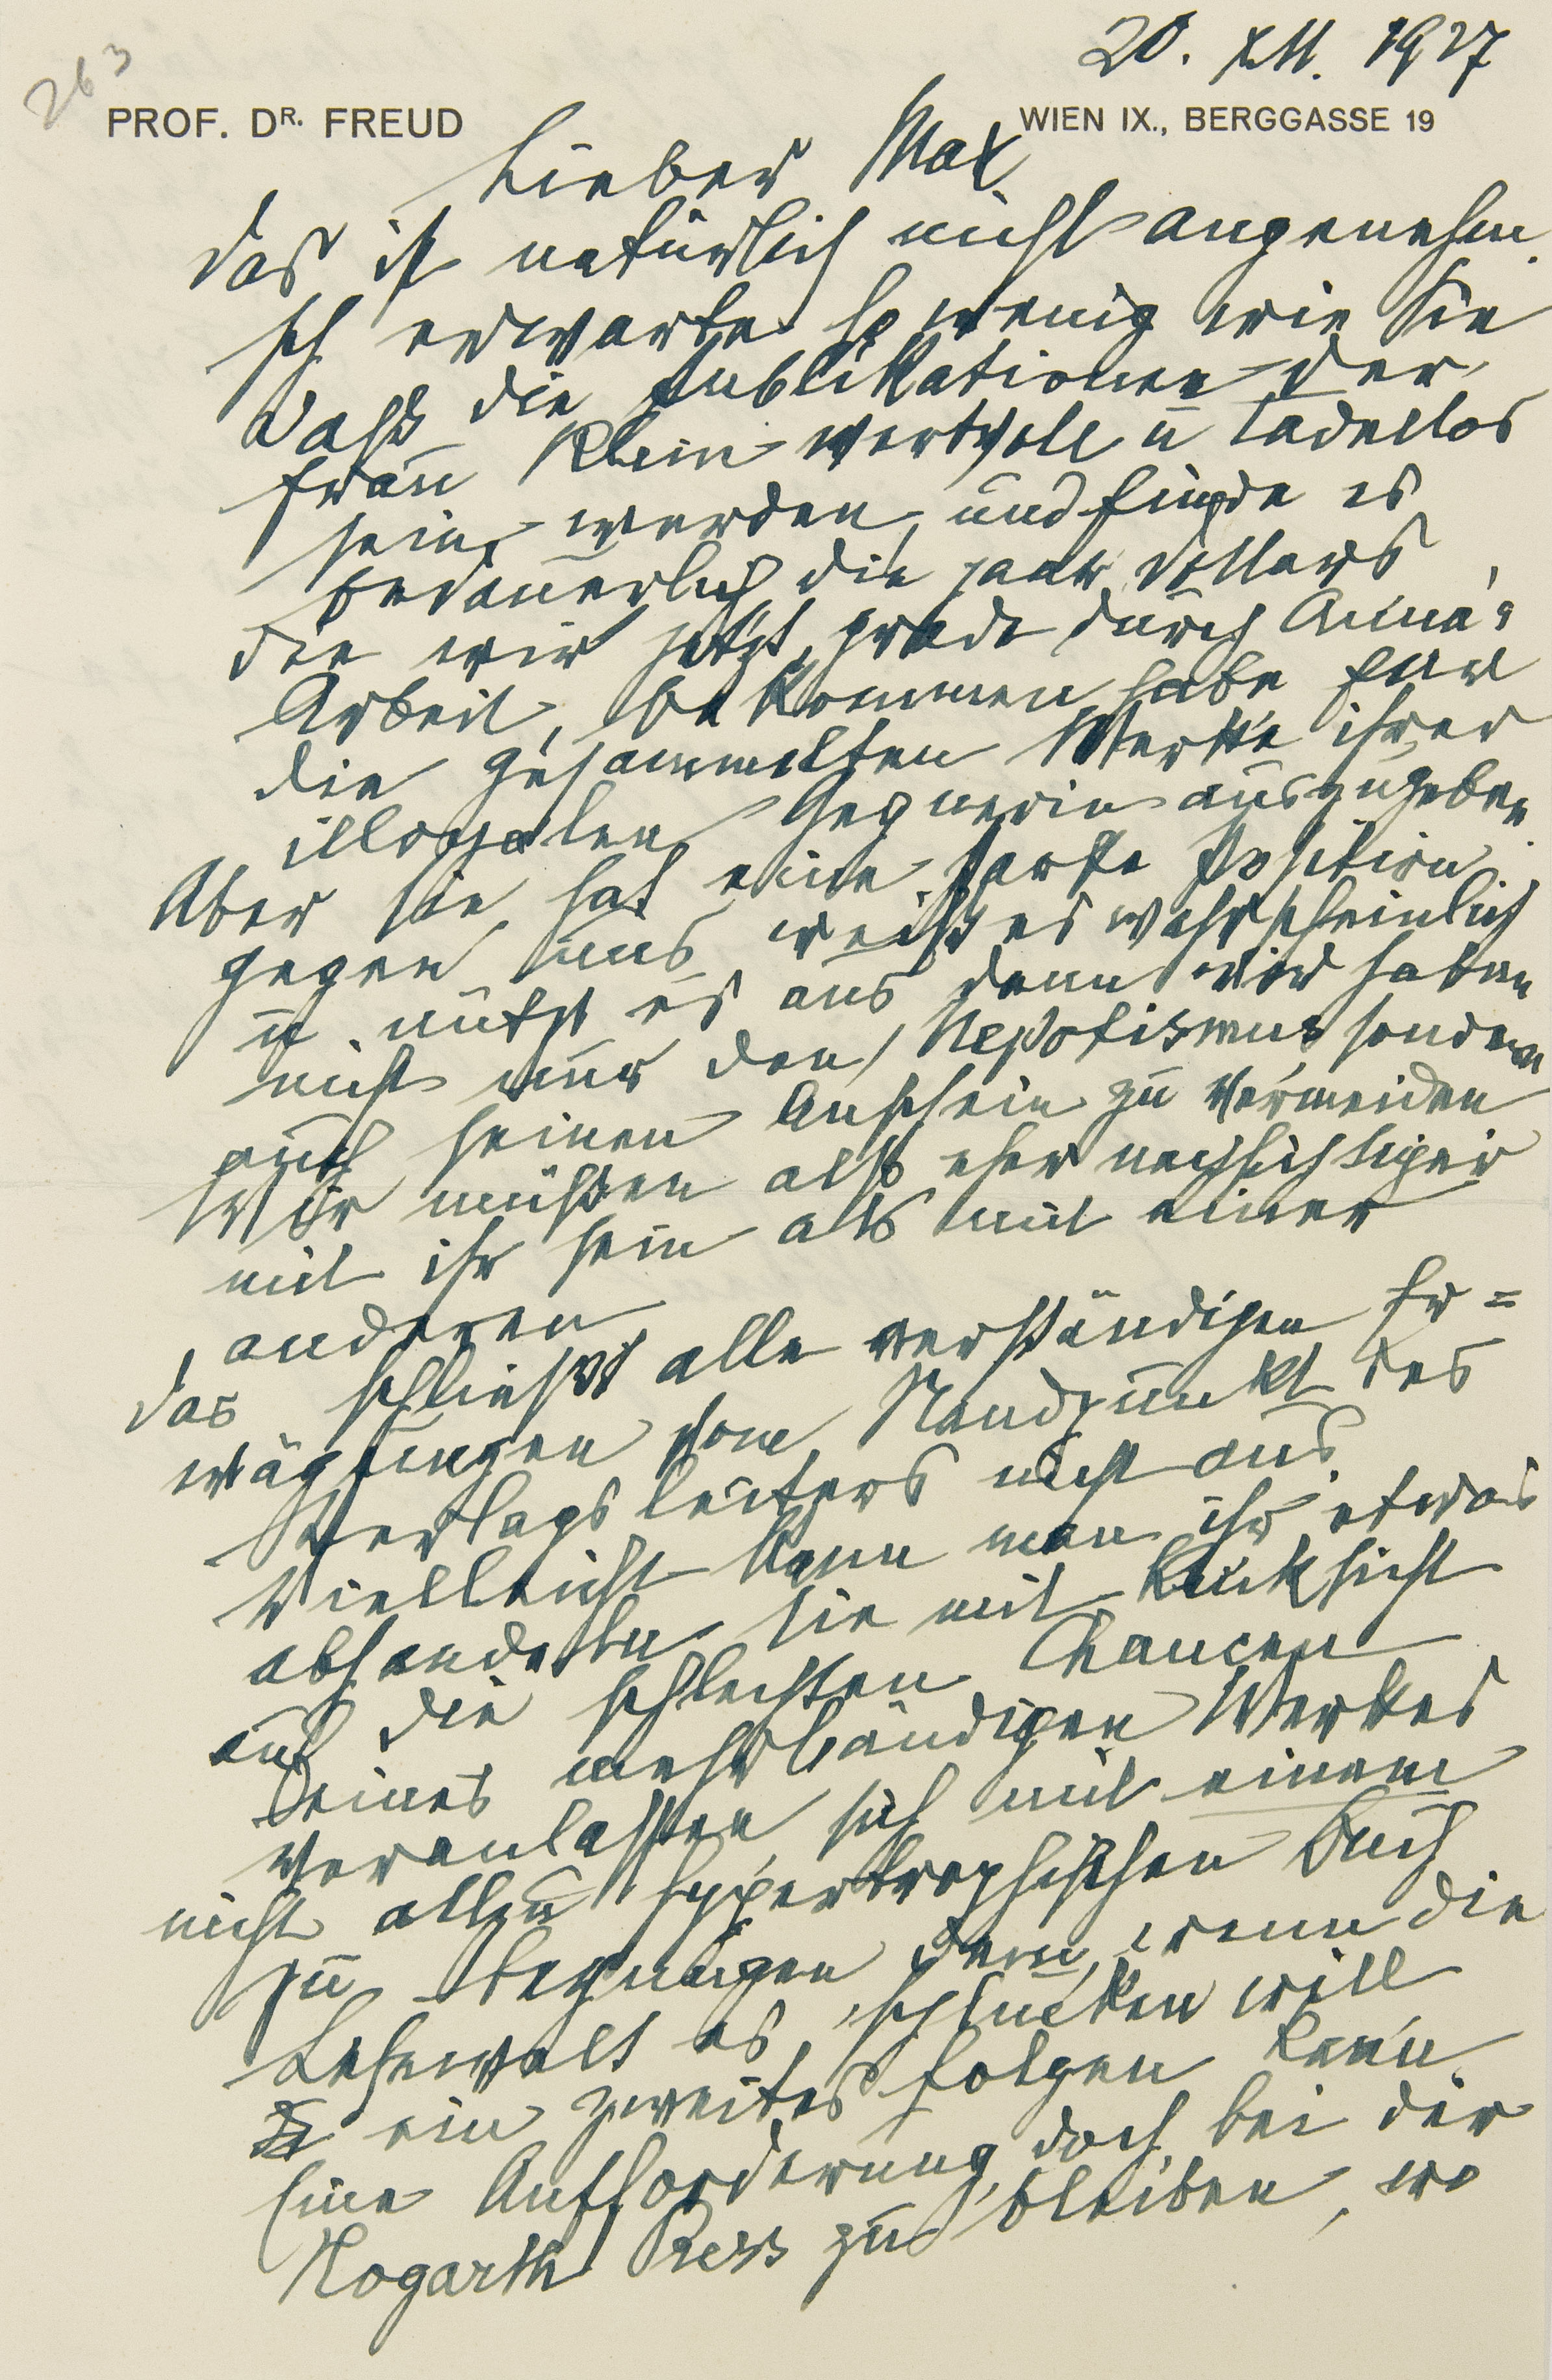 263
20. XII. 1927
PROF. DR. FREUD
WIEN IX., BERGGASSE 19
Lieber Max
Das ist natürlich nicht angenehm.
Ich erwarte so wenig wie Sie
daß die Publikationen der
Frau Klein wertvoll u tadellos
sein werden, und finde es
bedauerlich die paar Dollars
die wir jetzt, grade durch Anna's
Arbeit, bekommen habe für
die gesammelten Werke ihrer
illoyalen Gegnerin auszugeben.
Aber sie hat eine starke Position
gegen uns, weiß es wahrscheinlich
u nützt es aus denn wir haben
nicht nur den Nepotismus sondern
auch seinen Anschein zu vermeiden
Wir müßen also eher nachsichtiger
mit ihr sein als mit einer
anderen.
Das schließt alle verständigen Er=
wägungen vom Standpunkt des
Verlagsleiters nicht aus.
Vielleicht kann man ihr etwas
abhandeln sie mit Rücksicht
auf die schlechten Chancen
eines mehrbändigen Werkes
veranlaßen, sich mit einem
nicht allzu hypertrophischen Buch
zu begnügen dem, wenn die
Lesewelt es schlucken will
ein zweites folgen kann
Eine Aufforderung, doch bei der
Hogarth Press zu bleiben, wo